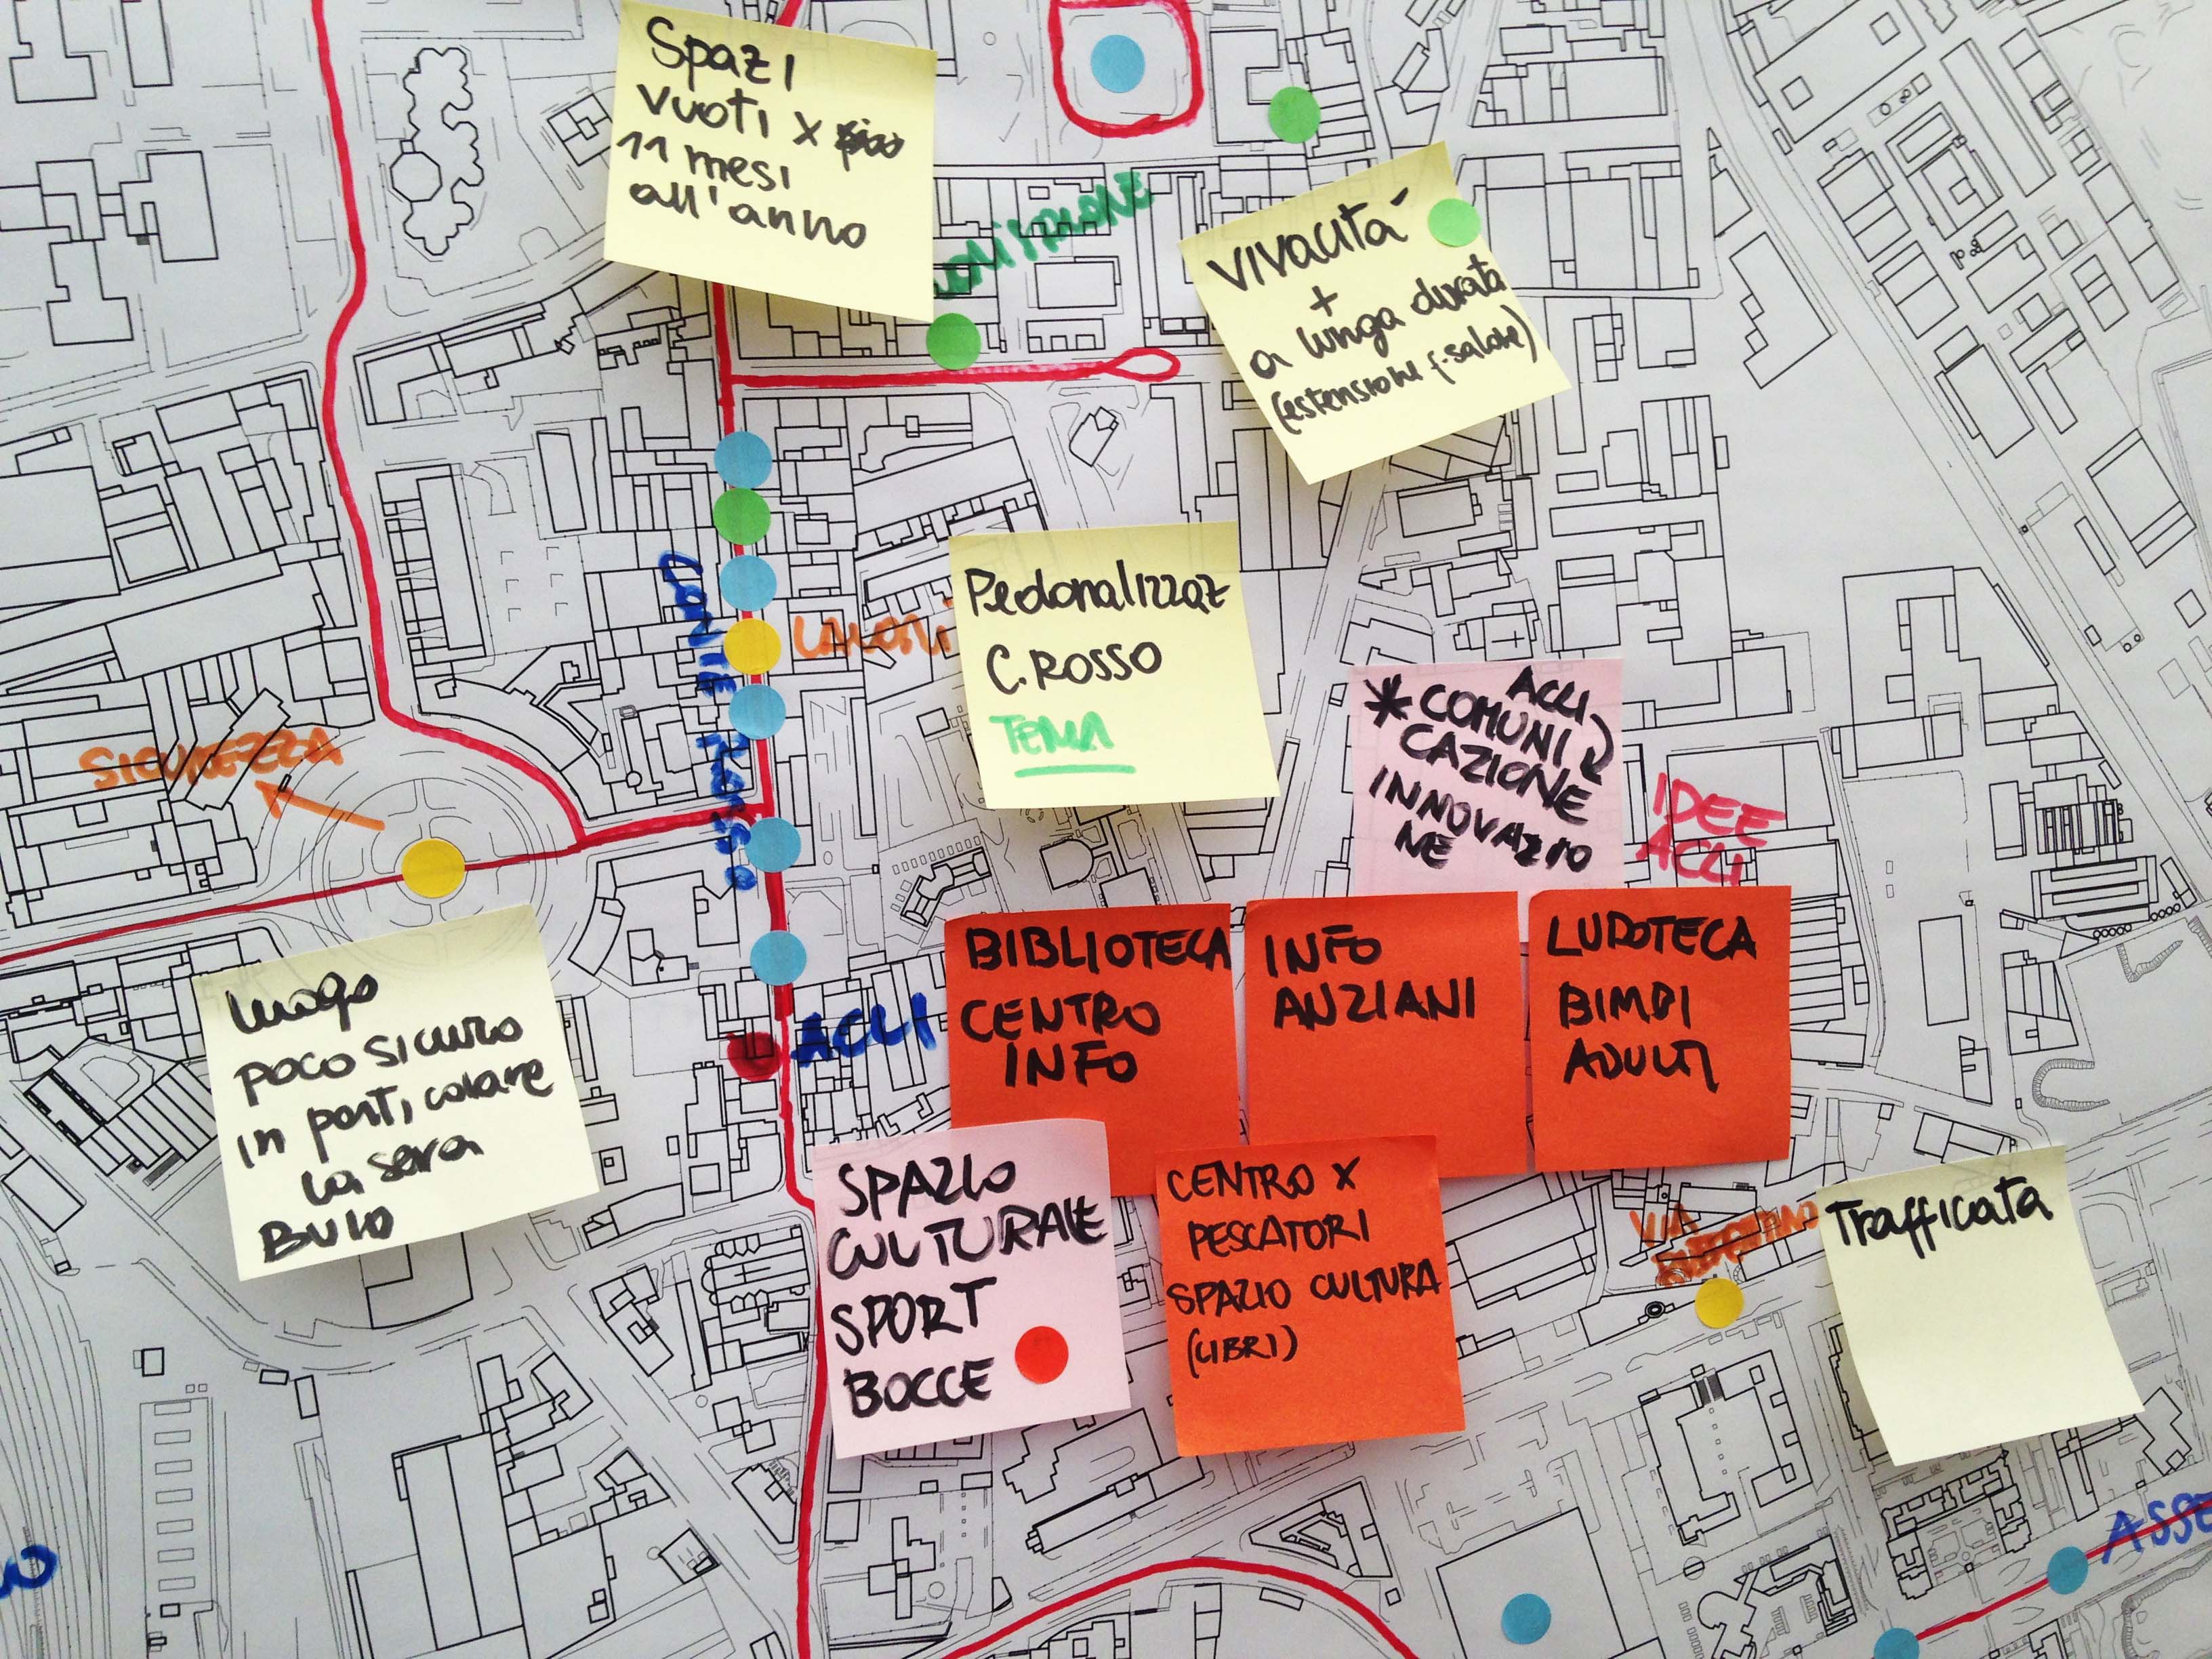 Spazi
vuoti x
11 mesi
all'anno
vivacità
+
a lunga durata
(estensione f. salone)
Pedonalizzaz
C. Rosso
TEMA
LAVORI
CONTE ROSSO
SICUREZZA
ACLI
* COMUNI
CAZIONE
INNOVAZIO
NE
IDEE
ACLI
luogo
poco sicuro
in particolare
la sera
BUIO
ACLI
BIBLIOTECA
CENTRO
INFO
INFO
ANZIANI
LUDOTECA
BIMBI
ADULTI
SPAZIO
CULTURALE
SPORT
BOCCE
CENTRO X
PESCATORI
SPAZIO CULTURA
(LIBRI)
VIA
Trafficata
ASSE